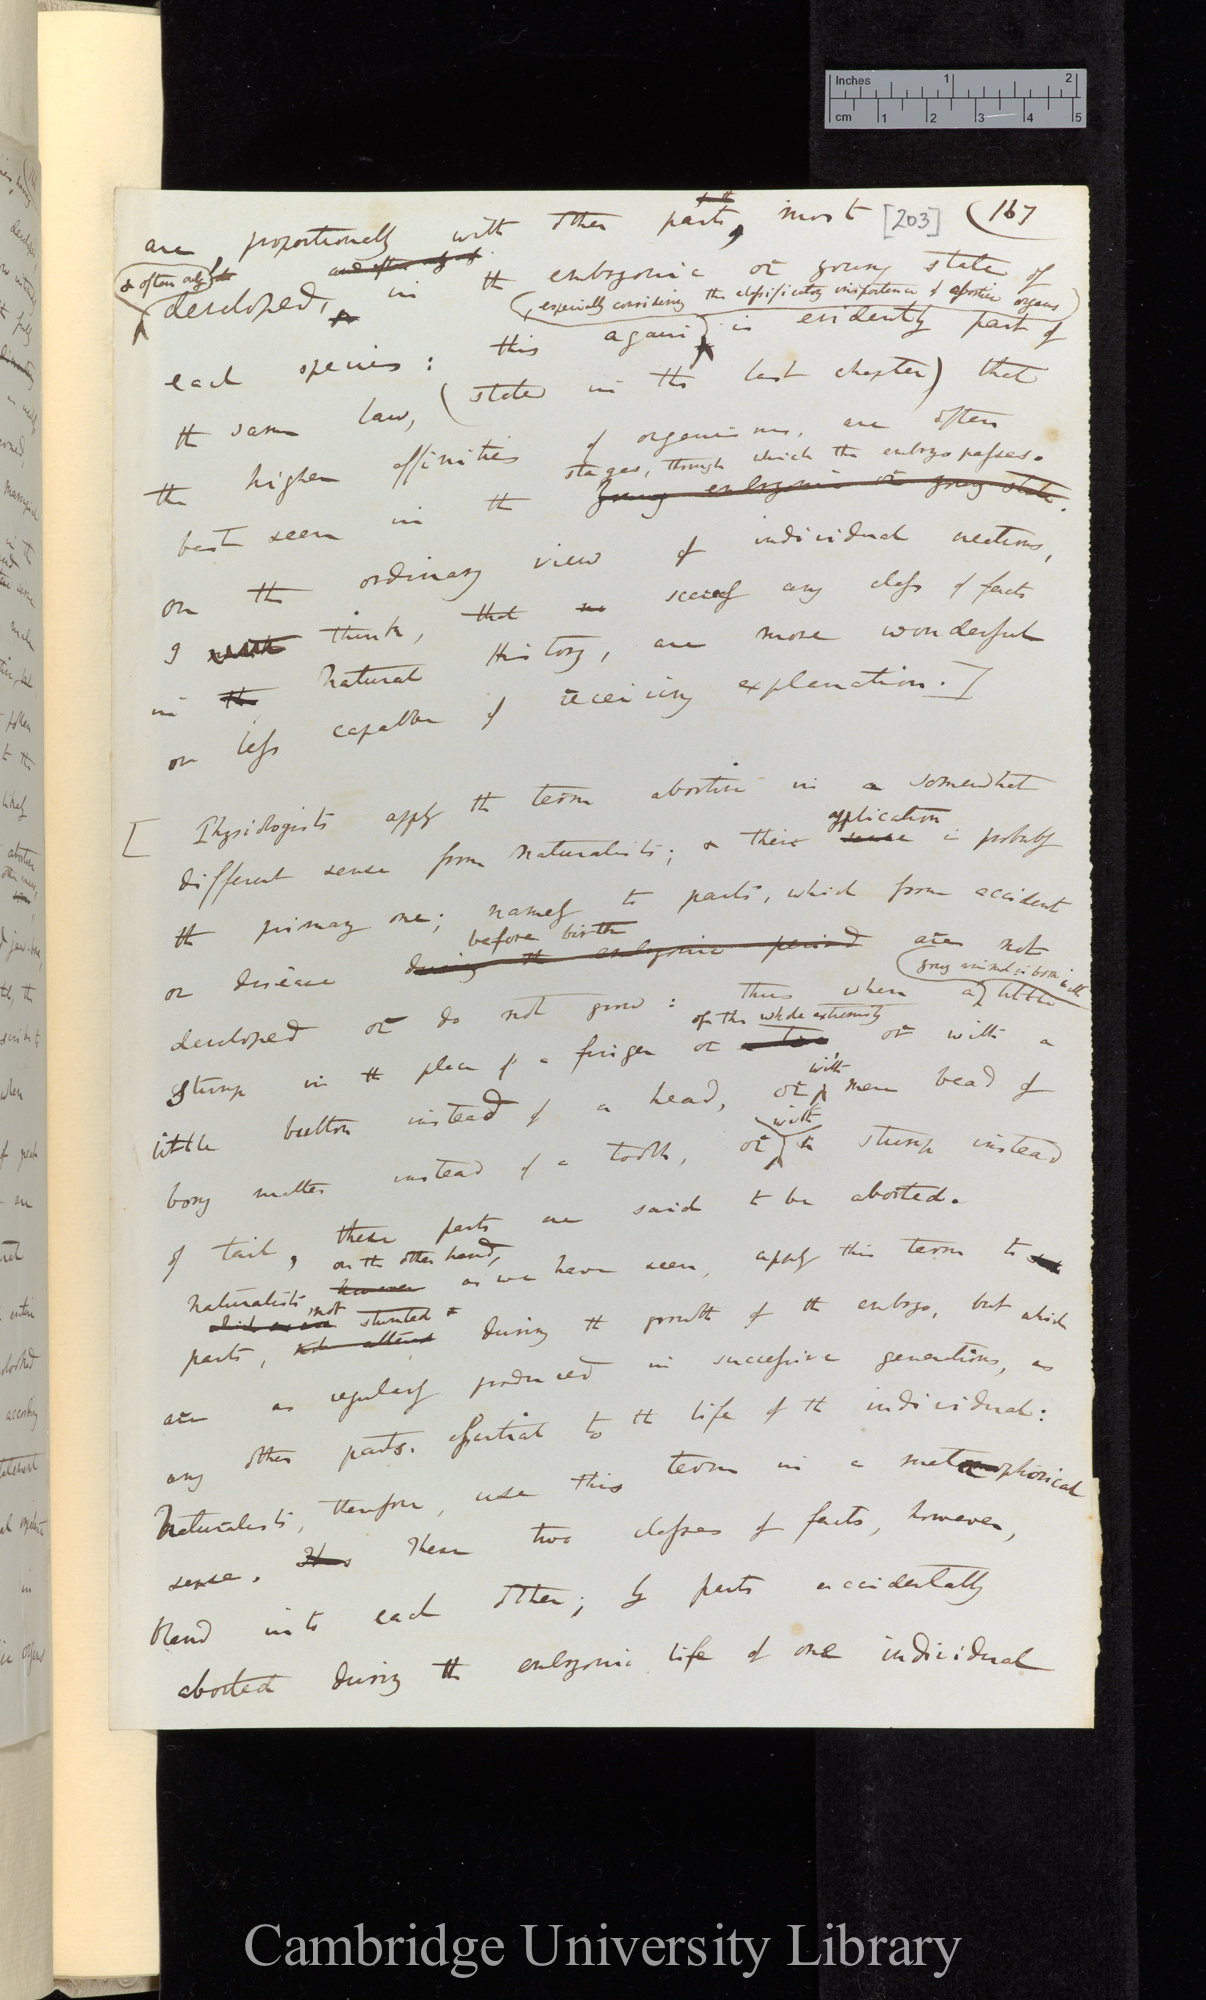 Inches 1 2
cm 1 2 3 4 5
[203] (167
are proportionally with other parts, most
& often only
and often only
developed, in the embryonic or young state of
, especially considering the classificatory importance of abortive organs
each species: this again is evidently part of
the same law, (stated in the last chapter) that
the higher affinities of organisms, are often
stages, through which the embryo passes.
best seen in the young embryonic or young state.
on the ordinary view of individual creations,
I think, that no scarcely any class of facts
in the Natural History, are more wonderful
or less capable of receiving explanation.]
[ Physiologists apply the term abortive in a somewhat
application
different sense from naturalists; & their sense is probably
the primary one; namely to parts, which from accident
before birth
or disease during the embryonic period are not
young animal is born with
developed or do not grow: thus when a little
of the whole extremity
stump in the place of a finger or a toe or with a
with
little button instead of a head, or mere bead of
with
bony matter instead of a tooth, or stump instead
of tail, these parts are said to be aborted.
on the other hand,
Naturalists however as we have seen, apply this term to
which are not stunted
parts, not altered during the growth of the embryo, but which
are as regularly produced in successive generations, as
any other parts. essential to the life of the individual:
Naturalists, therefore, use this term in a metaphorical
sense. These two classes of facts, however,
blend into each other; by parts accidentally
aborted during the embryonic life of one individual
Cambridge University Library